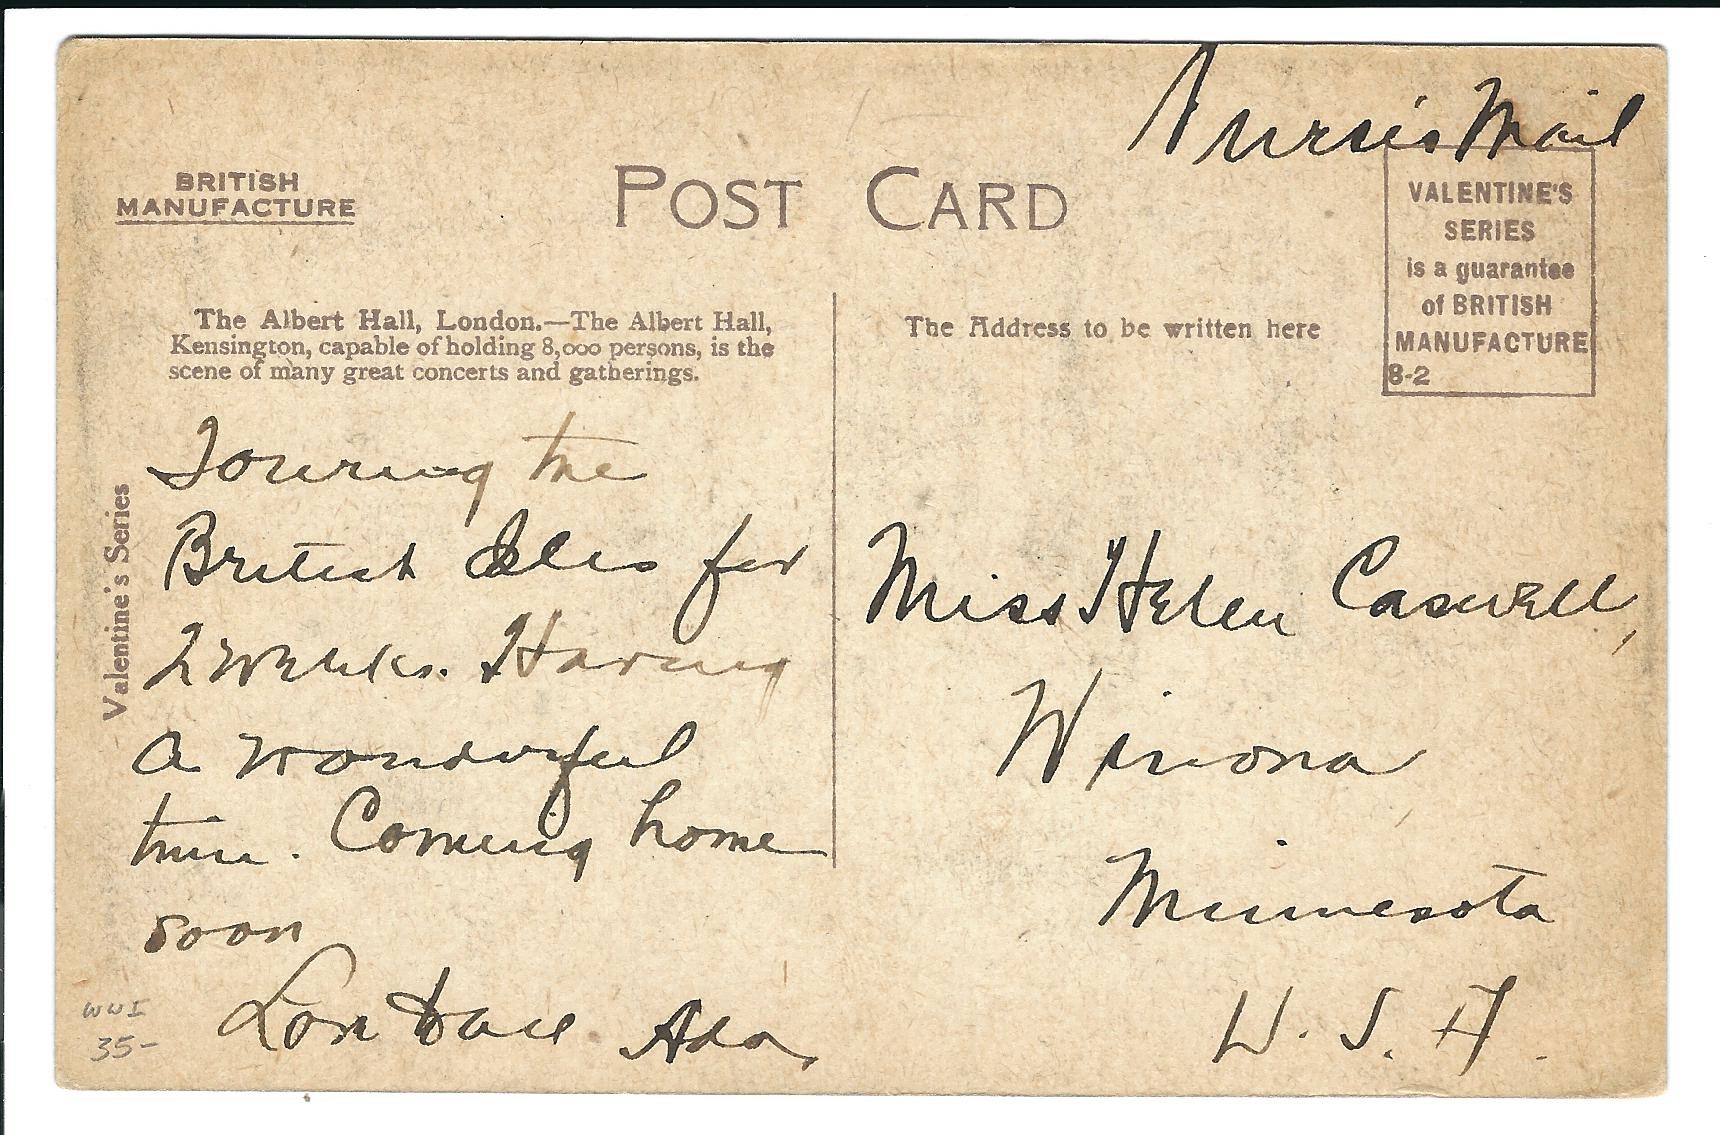 Nurse's Mail
BRITISH
MANUFACTURE
POST CARD
VALENTINE'S
SERIES
is a guarantee
of BRITISH
MANUFACTURE
8-2
The Albert Hall, London.—The Albert Hall,
Kensington, capable of holding 8,000 persons, is the
scene of many great concerts and gatherings.
The Address to be written here
Valentine's Series
Touring the
British Isles for
2 weeks. Having
a wonderful
time. Coming home
soon
Love to all Ada
Miss Helen Caswell,
Winona
Minnesota
U. S. A.
WWI
35-